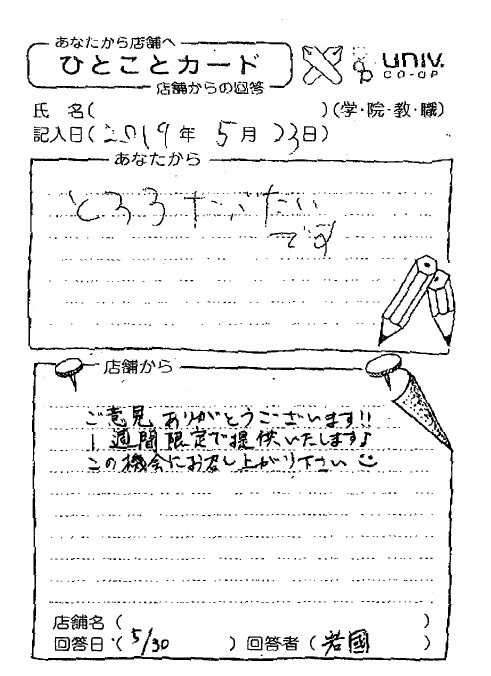 あなたから店舗へ
ひとことカード
店舗からの回答
UNIV.
CO-OP
氏 名( )(学・院・教・職)
記入日(2019年 5月 23日)
あなたから
とろろ たべたい
です
店舗から
ご意見 ありがとうございます!!
1週間限定で提供いたします♪
この機会にお召し上がり下さい☺
店舗名( )
回答日(5/30 )回答者(岩國 )